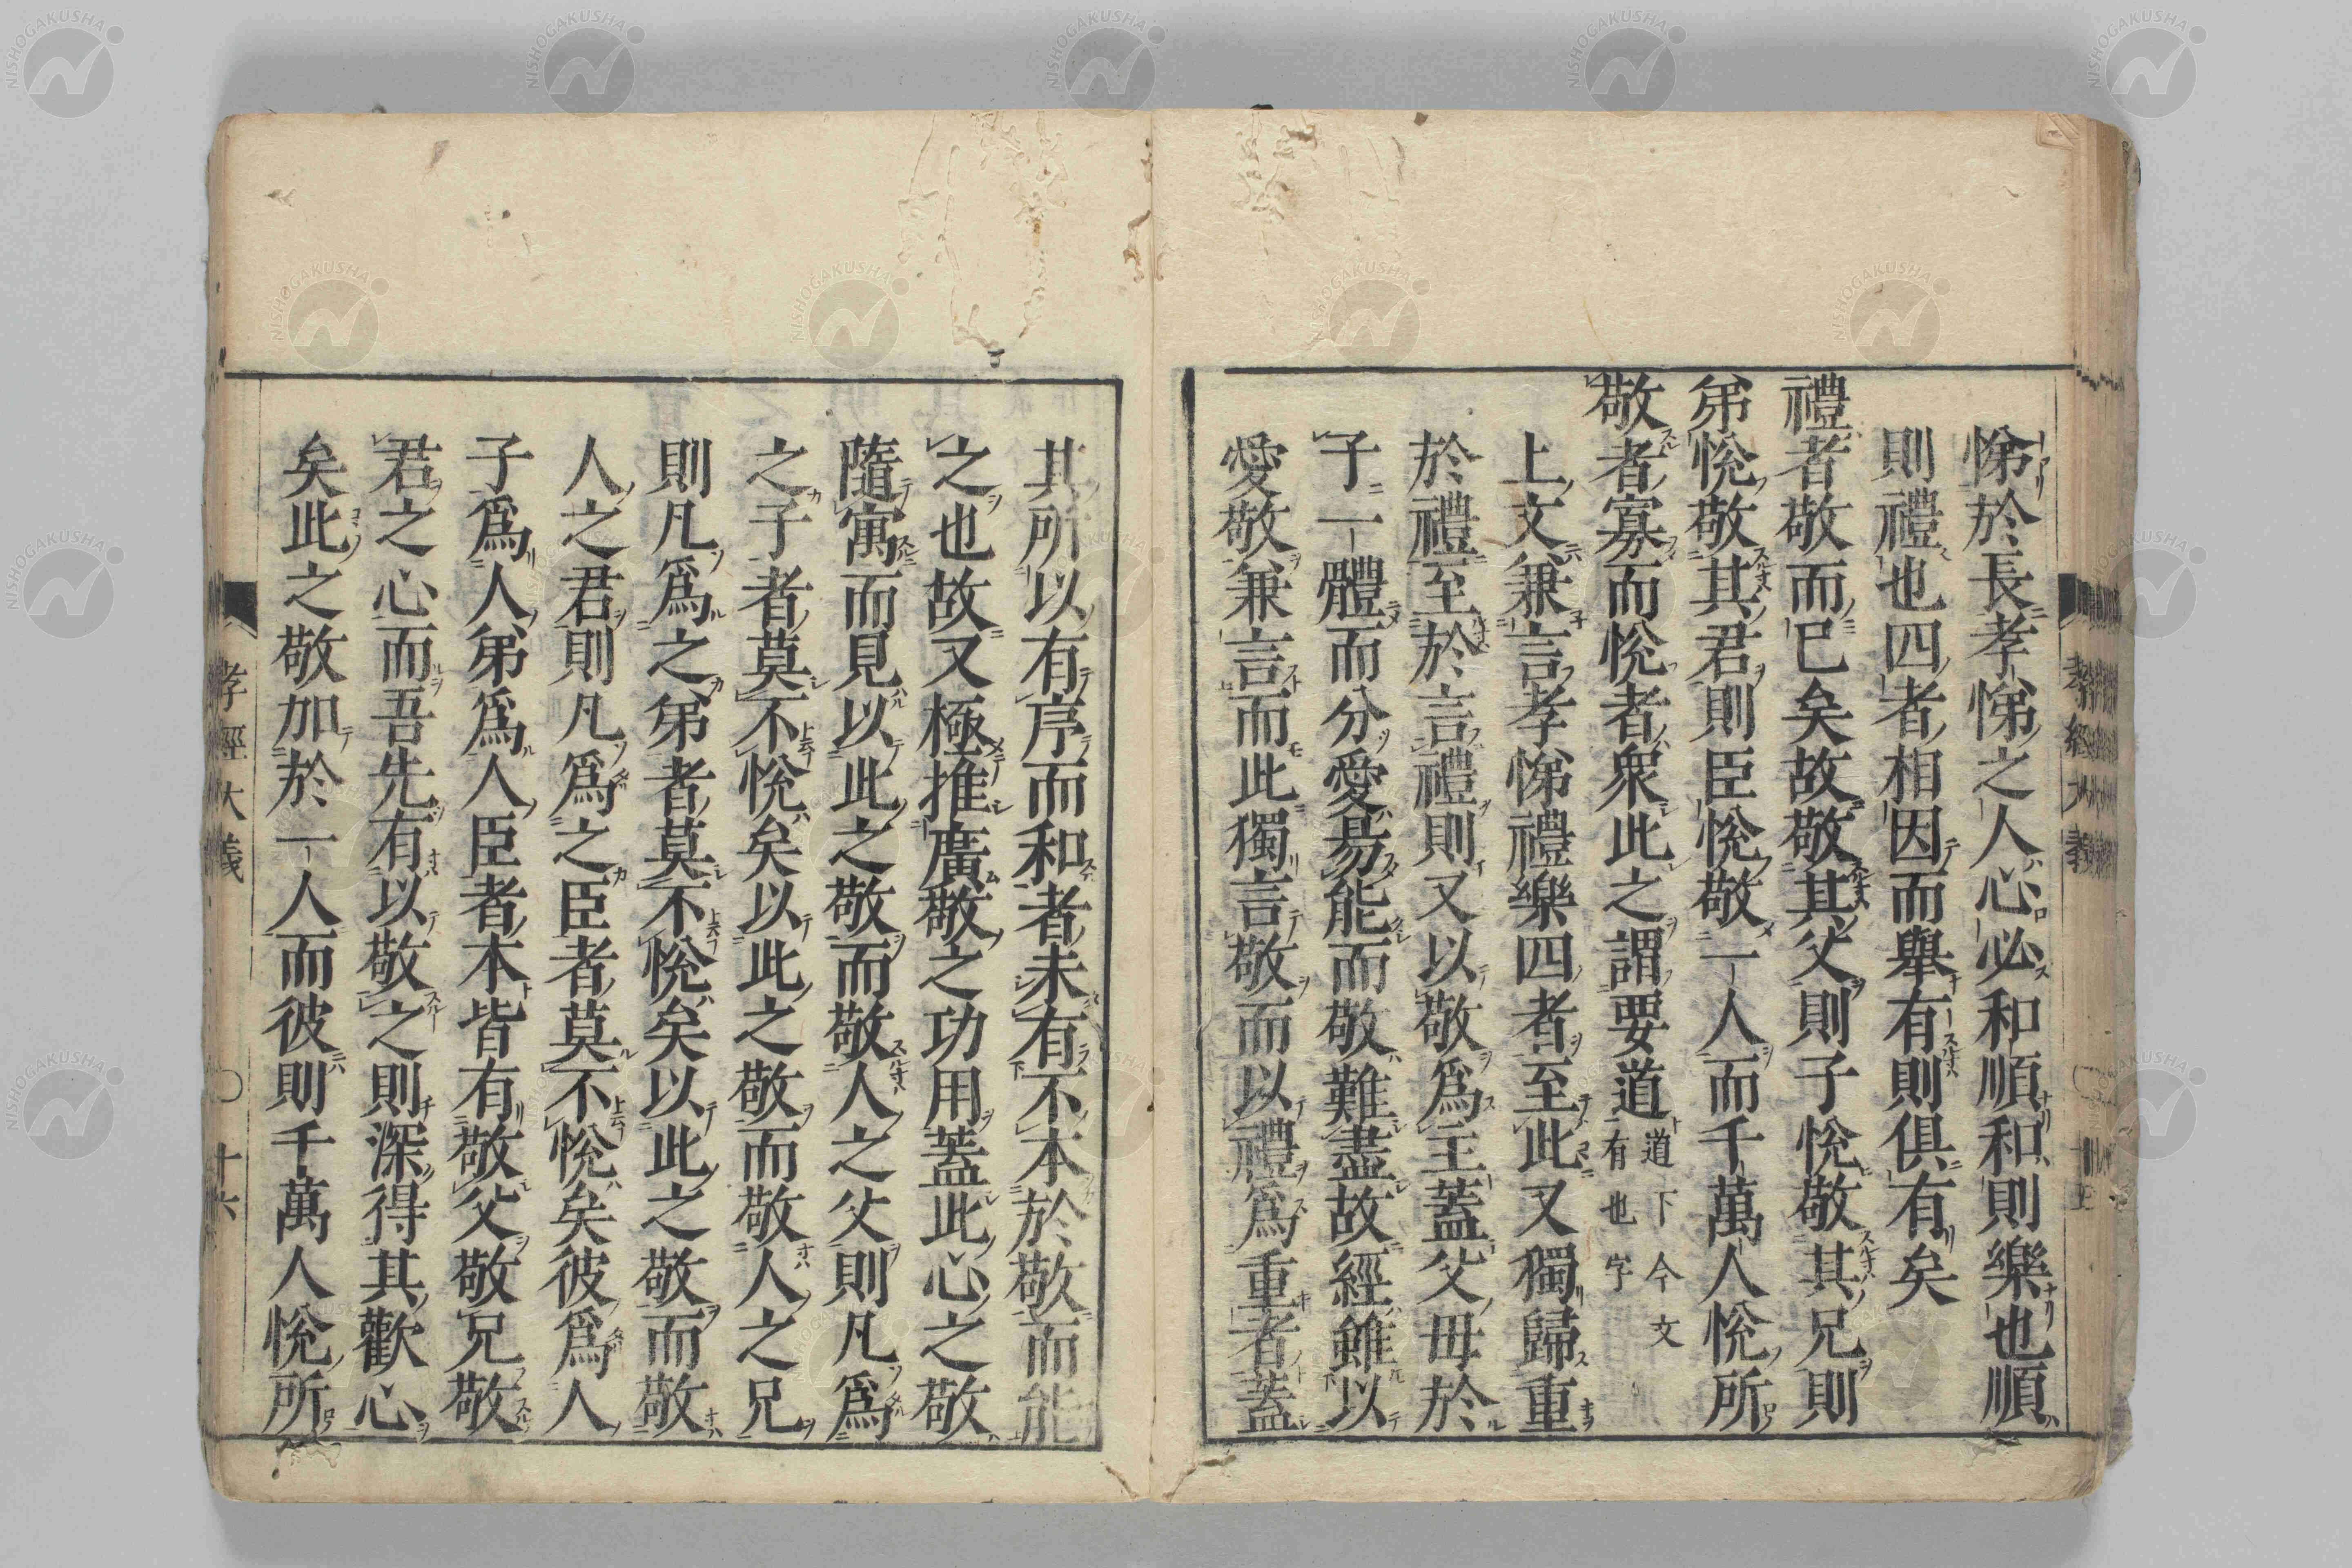 悌於長孝悌之人心必和順和則樂也順
則禮也四者相因而舉有則俱有矣
禮者敬而已矣故敬其父則子悅敬其兄則
弟悅敬其君則臣悅敬一人而千萬人悅所
敬者寡而悅者衆此之謂要道
道下今文
有也字
上文兼言孝悌禮樂四者至此又獨歸重
於禮至於言禮則又以敬爲主蓋父母於
子一體而分愛易能而敬難盡故經雖以
愛敬兼言而此獨言敬而以禮爲重者蓋
其所以有序而和者未有不本於敬而能
之也故又極推廣敬之功用蓋此心之敬
隨寓而見以此之敬而敬人之父則凡爲
之子者莫不悅矣以此之敬而敬人之兄
則凡爲之弟者莫不悅矣以此之敬而敬
人之君則凡爲之臣者莫不悅矣彼爲人
子爲人弟爲人臣者本皆有敬父敬兄敬
君之心而吾先有以敬之則深得其歡心
矣此之敬加於一人而彼則千萬人悅所
孝經大義
十六
孝經大義
NISHOGAKUSHA